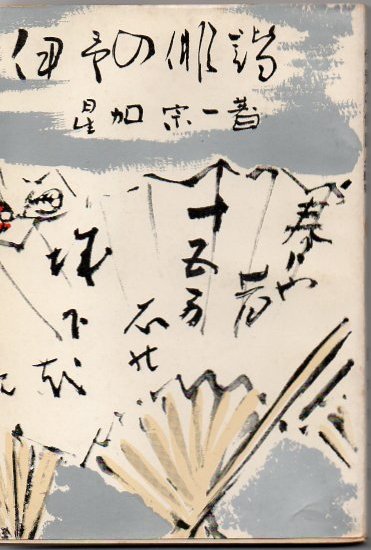 伊予の俳諧
星加宗一著
春や
昔
十五万
石の
城下哉